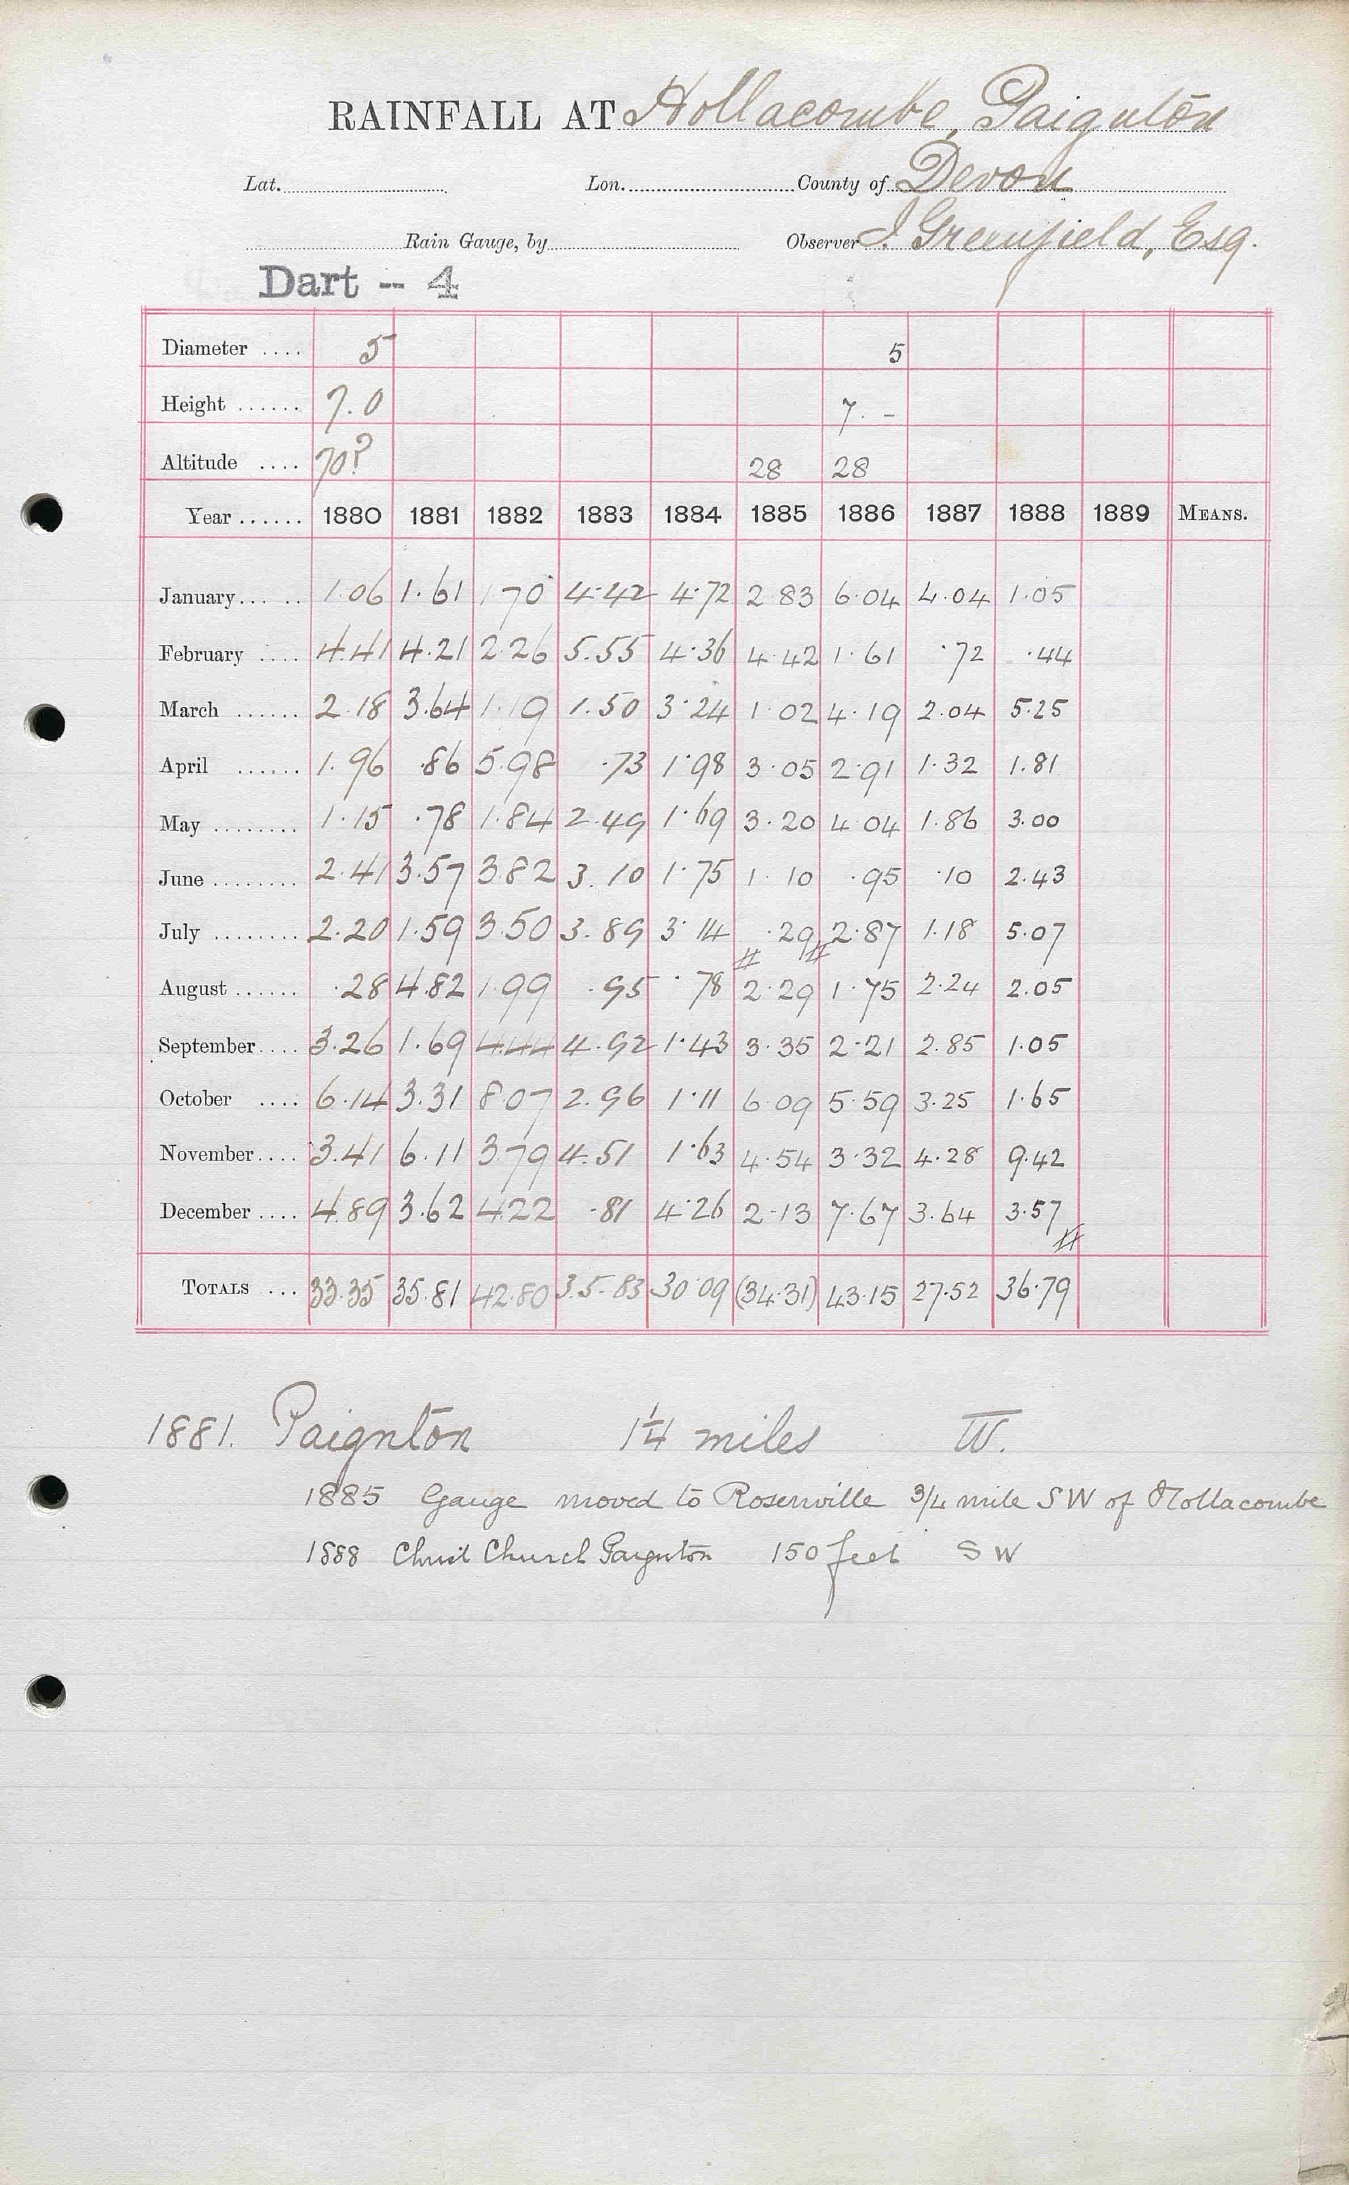 RAINFALL AT Hollacombe, Paignton
Lat. Lon. County of Devon
Rain Gauge, by Observer J Greenfield, Esq.
Dart -- 4
Diameter .... 5 5
Height ...... 7.0 7. -
Altitude .... 70? 28 28
Year ...... 1880 1881 1882 1883 1884 1885 1886 1887 1888 1889 MEANS.
January ... .. 1.06 1.61 1.70 4.42 4.72 2.83 6.04 4.04 1.05
February .... 4.41 4.21 2.26 5.55 4.36 4.42 1.61 .72 .44
March ...... 2.18 3.64 1.19 1.50 3.24 1.02 4.19 2.04 5.25
April ...... 1.96 .86 5.98 .73 1.98 3.05 2.91 1.32 1.81
May ........ 1.15 .78 1.84 2.49 1.69 3.20 4.04 1.86 3.00
June ........ 2.41 3.57 3.82 3.10 1.75 1.10 .95 .10 2.43
July ........ 2.20 1.59 3.50 3.89 3.14 .29 2.87 1.18 5.07
August ...... .28 4.82 1.99 .95 .78 2.29 1.75 2.24 2.05
September .... 3.26 1.69 4.44 4.92 1.43 3.35 2.21 2.85 1.05
October .... 6.14 3.31 8.07 2.96 1.11 6.09 5.59 3.25 1.65
November .... 3.41 6.11 3.79 4.51 1.63 4.54 3.32 4.28 9.42
December .... 4.89 3.62 4.22 .81 4.26 2.13 7.67 3.64 3.57
TOTALS ... 33.35 35.81 42.80 35.83 30.09 (34.31) 43.15 27.52 36.79
1881. Paignton 1¼ miles W.
1885 Gauge moved to Rosenville 3/4 mile SW of Hollacombe
1888 Christ Church Paignton 150 feet SW